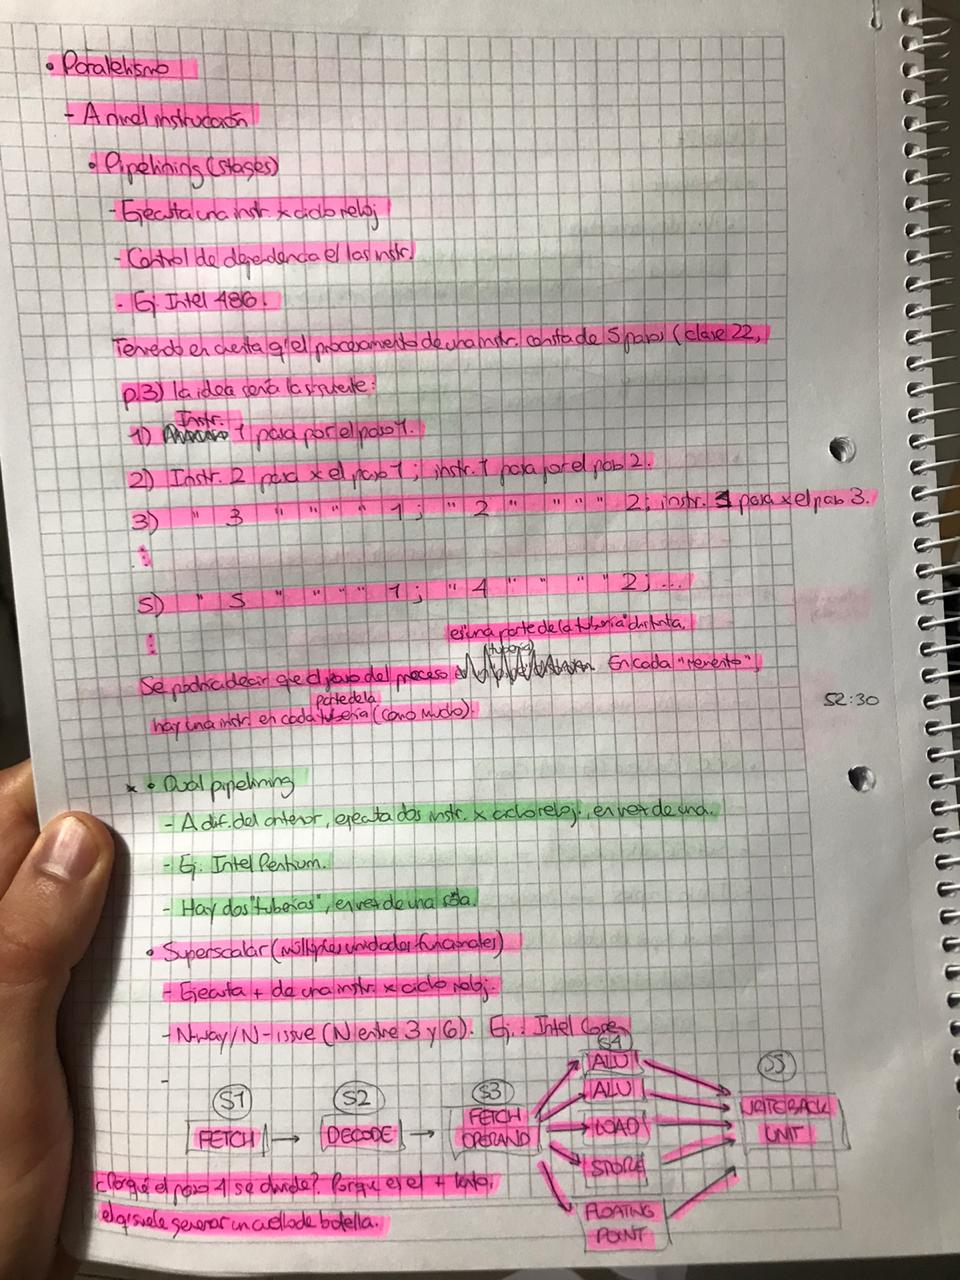 • Paralelismo
- A nivel instrucción
• Pipelining (stages)
- Ejecuta una instr. x ciclo reloj
- Control de dependencia e/ las instr.
- Ej: Intel 486.
Teniendo en cuenta q' el procesamiento de una instr. consta de 5 pasos (clase 22,
p.3) la idea sería la siguiente:
1) Instr. 1 pasa por el paso 1.
2) Instr. 2 pasa x el paso 1; instr. 1 pasa por el paso 2.
3) " 3 " " " " 1; " 2 " " " " 2; instr. 1 pasa x el paso 3.
⋮
5) " 5 " " " " 1; " 4 " " " " 2; ...
⋮
es una parte de la "tubería" distinta.
Se podría decir que el paso del proceso (tubería) En cada "momento",
hay una instr. en cada parte de la tubería (como mucho).
52:30
* • Dual pipelining
- A dif. del anterior, ejecuta dos instr. x ciclo reloj, en vez de una.
- Ej: Intel Pentium.
- Hay dos "tuberías", en vez de una sola.
• Superscalar (múltiples unidades funcionales)
- Ejecuta + de una instr. x ciclo reloj.
- N-way/N-issue (N entre 3 y 6). Ej.: Intel Core.
S1 S2 S3 S4 S5
FETCH → DECODE → FETCH OPERAND
ALU
ALU
LOAD
STORE
FLOATING POINT
WRITEBACK UNIT
¿Por qué el paso 4 se divide? Porque es el + lento,
el q' suele generar un cuello de botella.